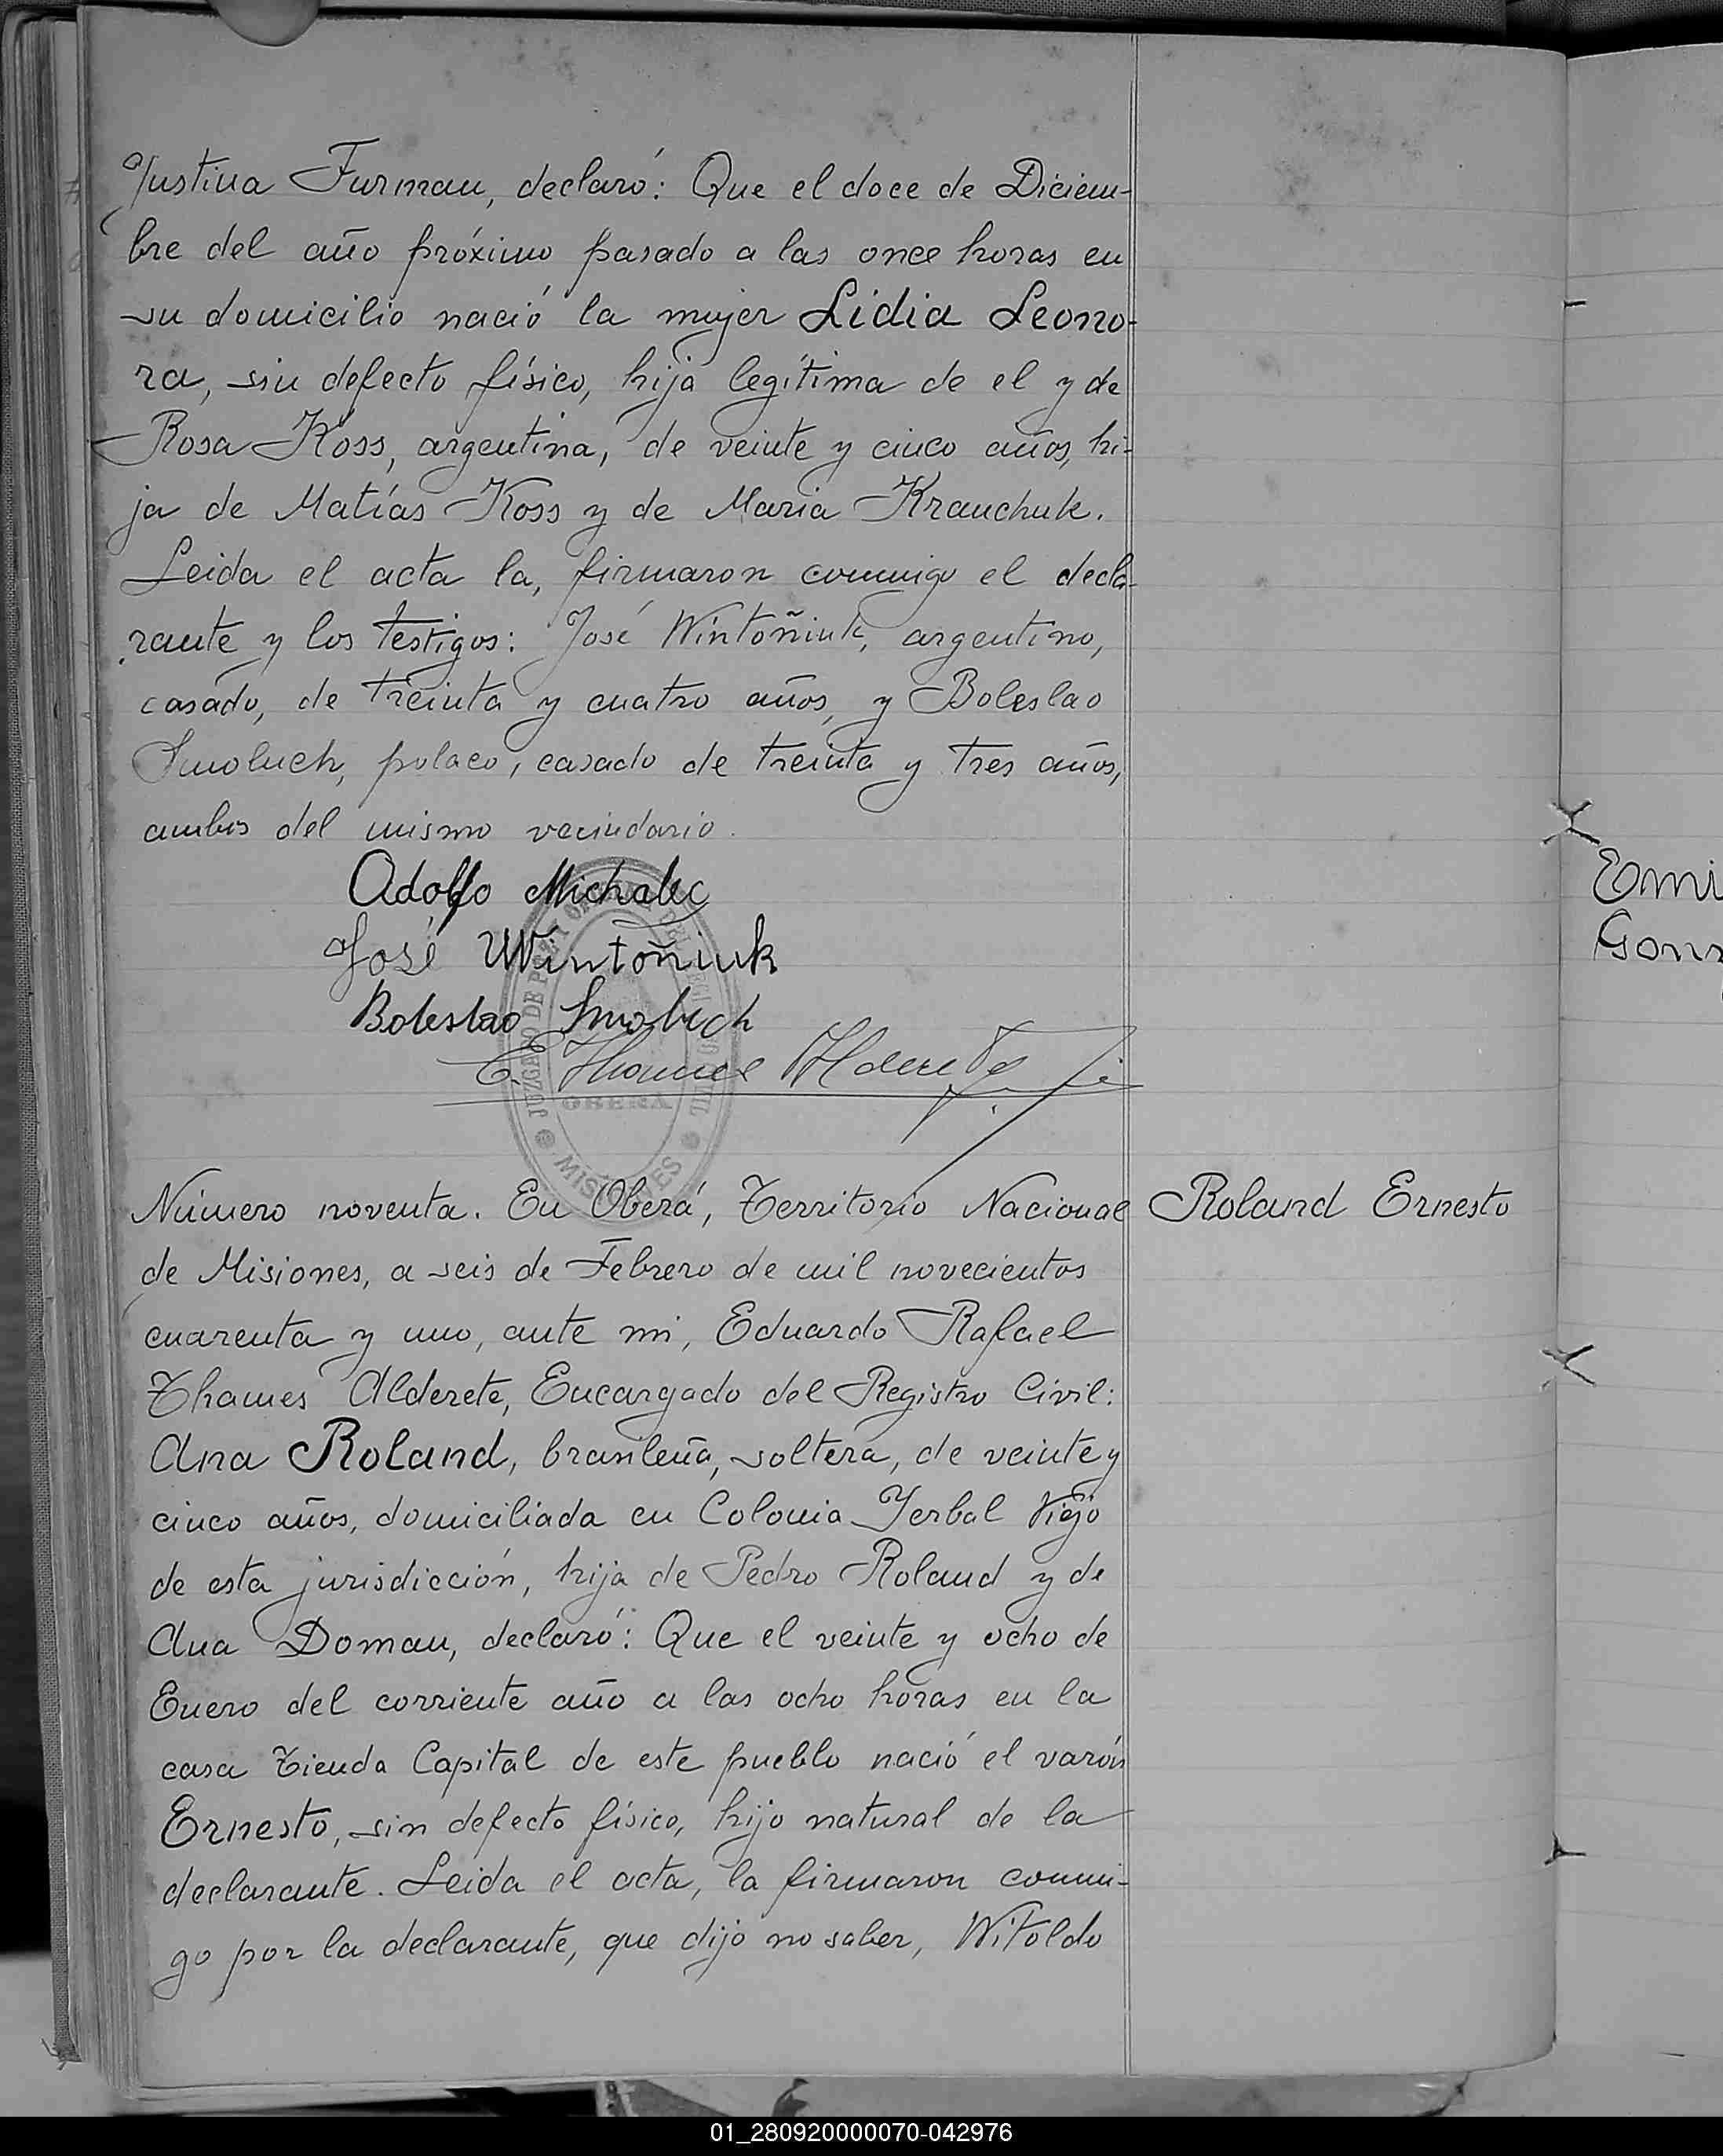 Justina Furman, declaró: Que el doce de Diciem-
bre del año próximo pasado a las once horas en
su domicilio nació la mujer Lidia Leono-
ra, sin defecto físico, hija legítima de el y de
Rosa Koss, argentina, de veinte y cinco años, hi-
ja de Matías Koss y de Maria Krauchuk.
Leida el acta la, firmaron conmigo el decla-
rante y los testigos: José Wintoñiuk, argentino,
casado, de treinta y cuatro años, y Boleslao
Smoluch, polaco, casado de treinta y tres años,
ambos del mismo vecindario.
Adolfo Michalec
José Wintoñiuk
Boleslao Smoluch
E. Thames Alderete
JUZGADO DE PAZ Y
OBERÁ
MISIONES
Número noventa. En Oberá, Territorio Nacional
Roland Ernesto
de Misiones, a seis de Febrero de mil novecientos
cuarenta y uno, ante mi, Eduardo Rafael
Thames Alderete, Encargado del Registro Civil:
Ana Roland, brasileña, soltera, de veinte y
cinco años, domiciliada en Colonia Yerbal Viejo
de esta jurisdicción, hija de Pedro Roland y de
Ana Doman, declaró: Que el veinte y ocho de
Enero del corriente año a las ocho horas en la
casa Tienda Capital de este pueblo nació el varón
Ernesto, sin defecto físico, hijo natural de la
declarante. Leida el acta, la firmaron conmi-
go por la declarante, que dijo no saber, Witoldo
Emi
Gonz
01_280920000070-042976